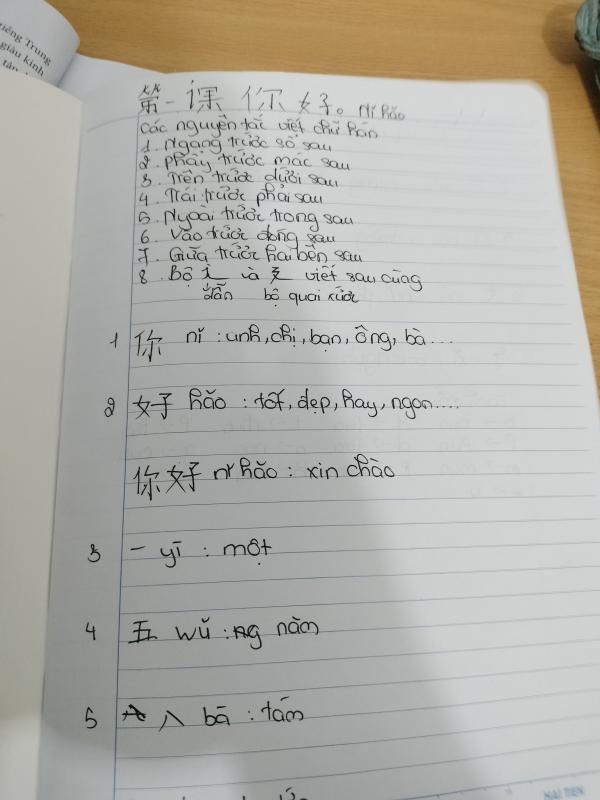 tiếng Trung
giàu kinh
第一课 你好。 Ní hǎo
Các nguyên tắc viết chữ hán
1. Ngang trước sổ sau
2. phẩy trước mác sau
3. Trên trước dưới sau
4. Trái trước phải sau
5. Ngoài trước trong sau
6. Vào trước đóng sau
7. Giữa trước hai bên sau
8. Bộ 辶 và 廴 viết sau cùng
dẫn bộ quai xước
1 你 nǐ : anh, chị, bạn, ông, bà ...
2 好 hǎo : tốt, đẹp, hay, ngon....
你好 ní hǎo : xin chào
3 一 yī : một
4 五 wǔ : năm
5 八 bā : tám
HẢI TIẾN